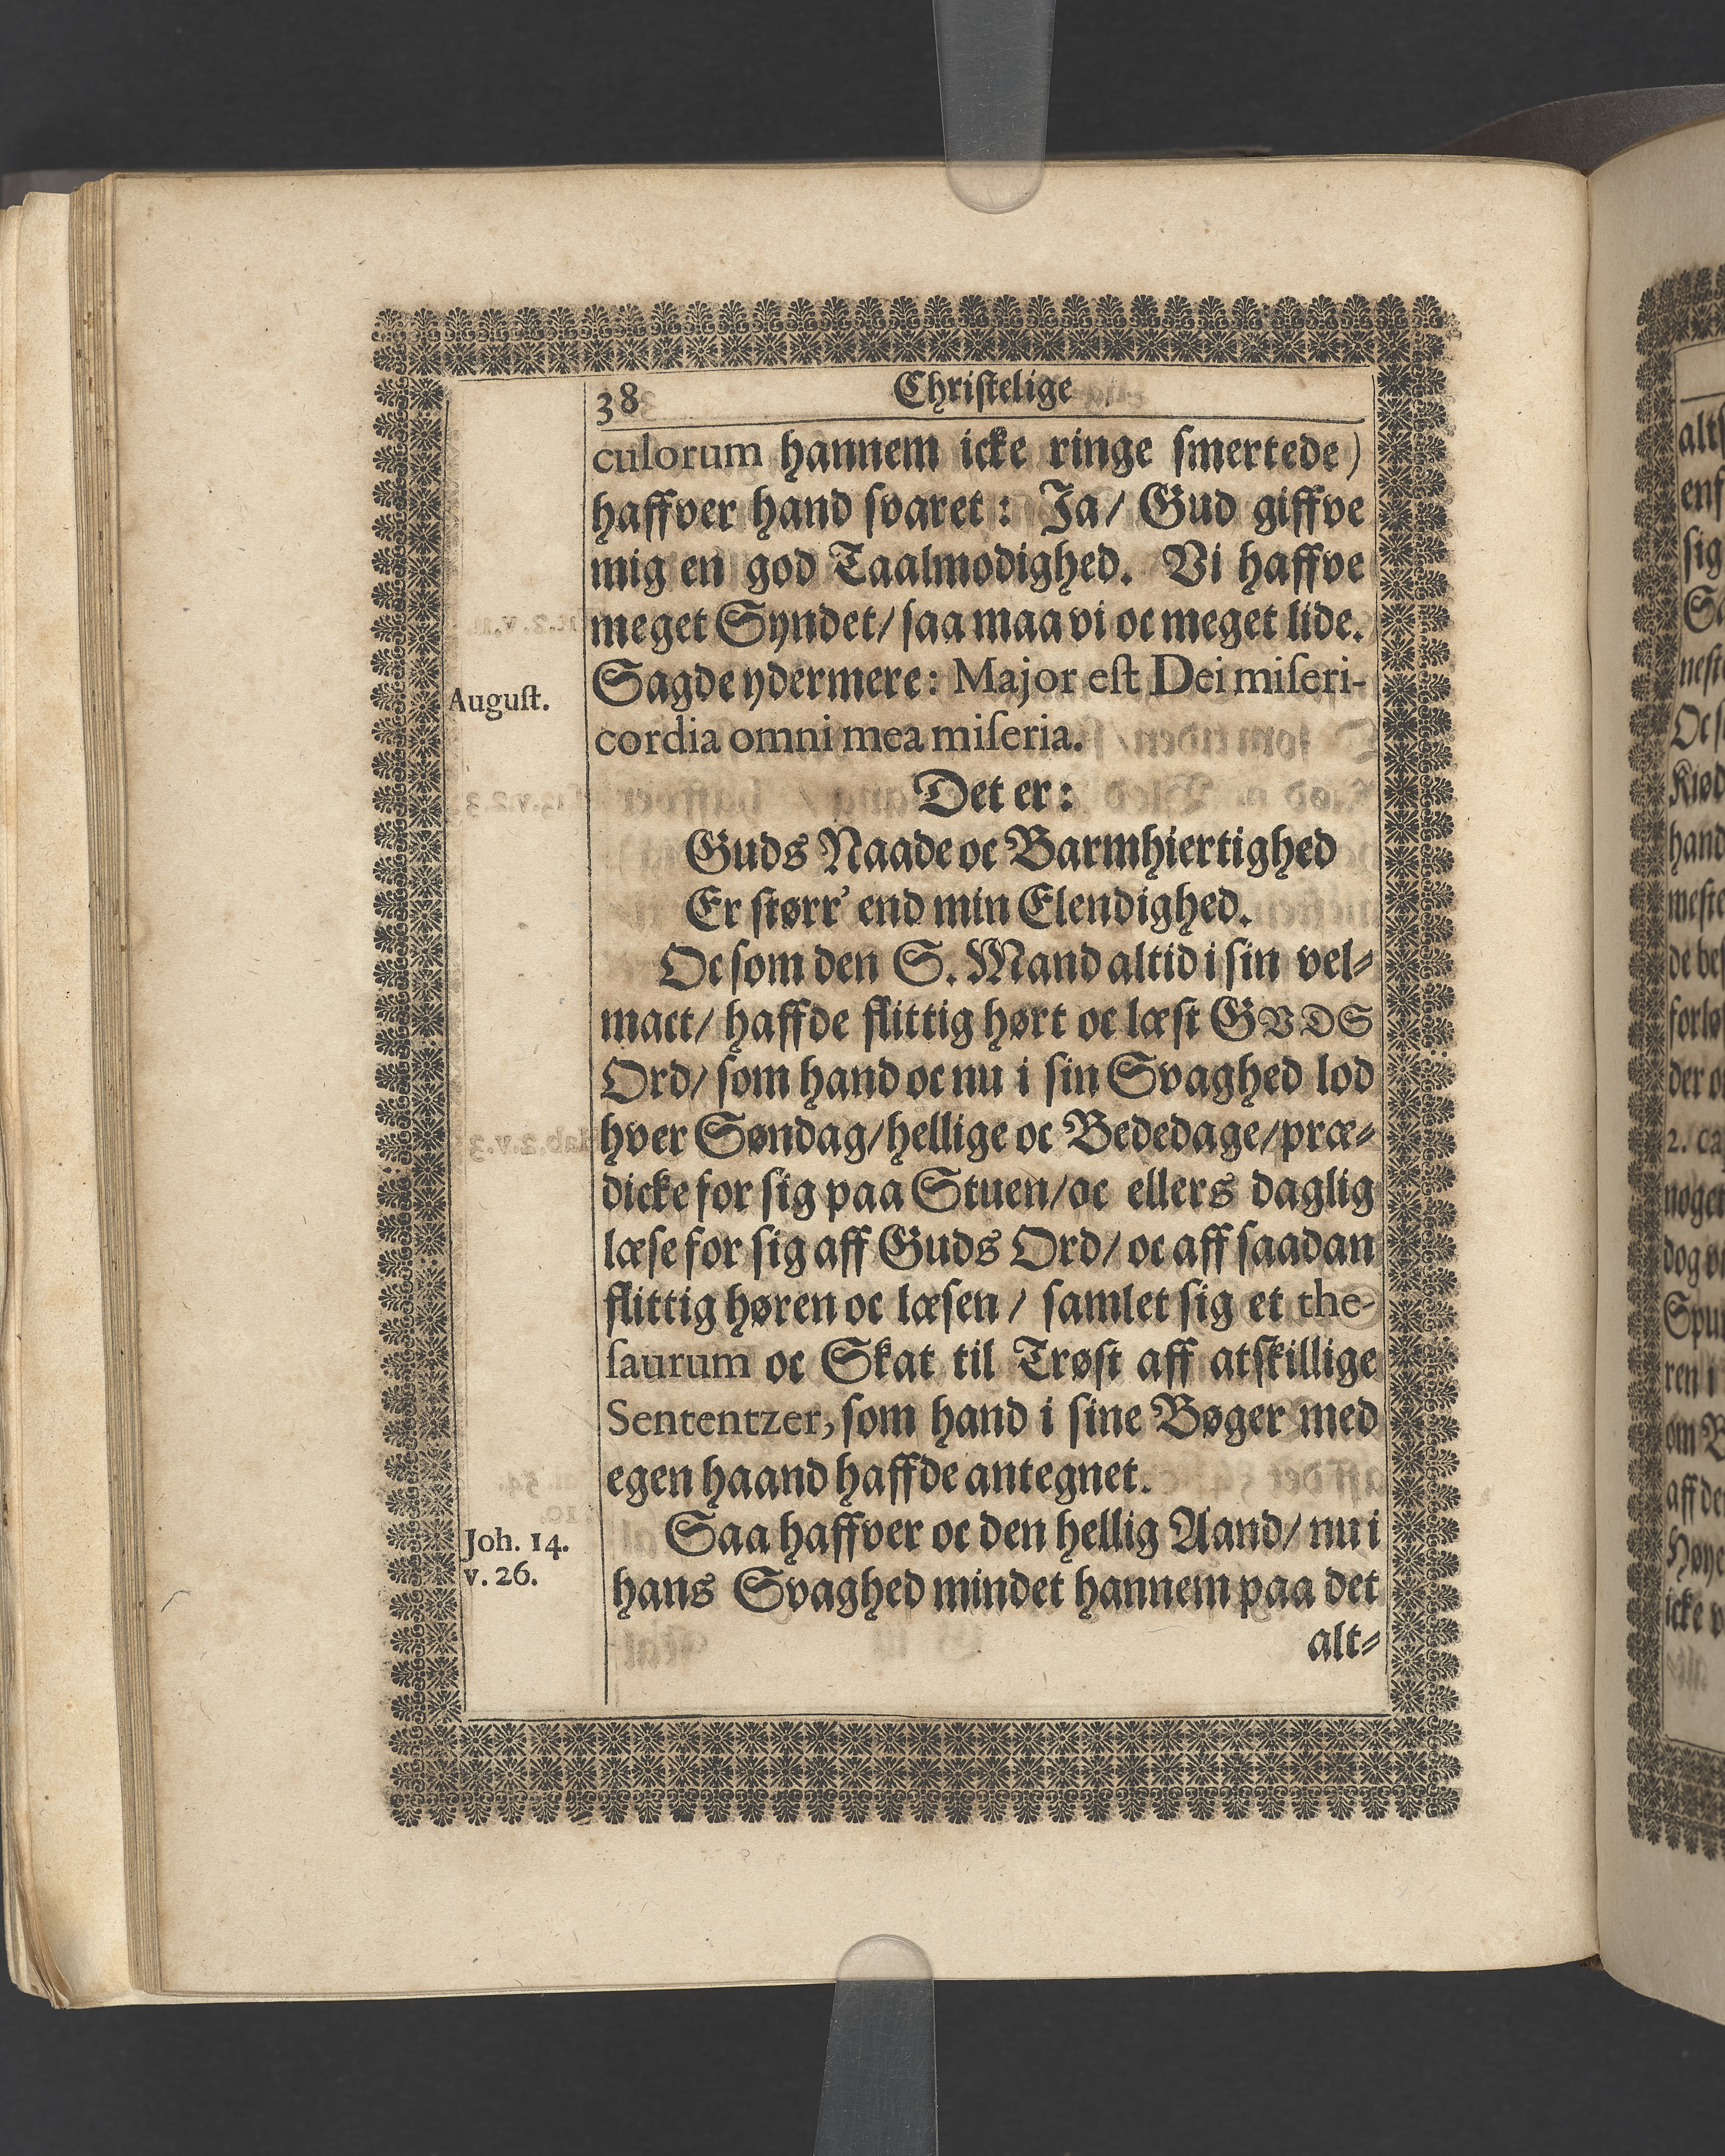 38 Christelige
culorum hannem icke ringe smertede)
haffver hand svaret: Ja/ Gud giffve
mig en god Taalmodighed. Vi haffve
meget Syndet/ saa maa vi oc meget lide.
August.
Sagde ydermere: Major est Dei miseri-
cordia omni mea miseria.
Det er:
Guds Naade oc Barmhiertighed
Er størr' end min Elendighed.
Oc som den S. Mand altid i sin vel-
mact/ haffde flittig hørt oc læst GVDS
Ord/ som hand oc nu i sin Svaghed lod
hver Søndag/ hellige oc Bededage/ præ-
dicke for sig paa Stuen/ oc ellers daglig
læse for sig aff Guds Ord/ oc aff saadan
flittig høren oc læsen/ samlet sig et the-
saurum oc Skat til Trøst aff atskillige
Sententzer, som hand i sine Bøger med
egen haand haffde antegnet.
Joh. 14.
v. 26.
Saa haffver oc den hellig Aand/ nu i
hans Svaghed mindet hannem paa det
alt-